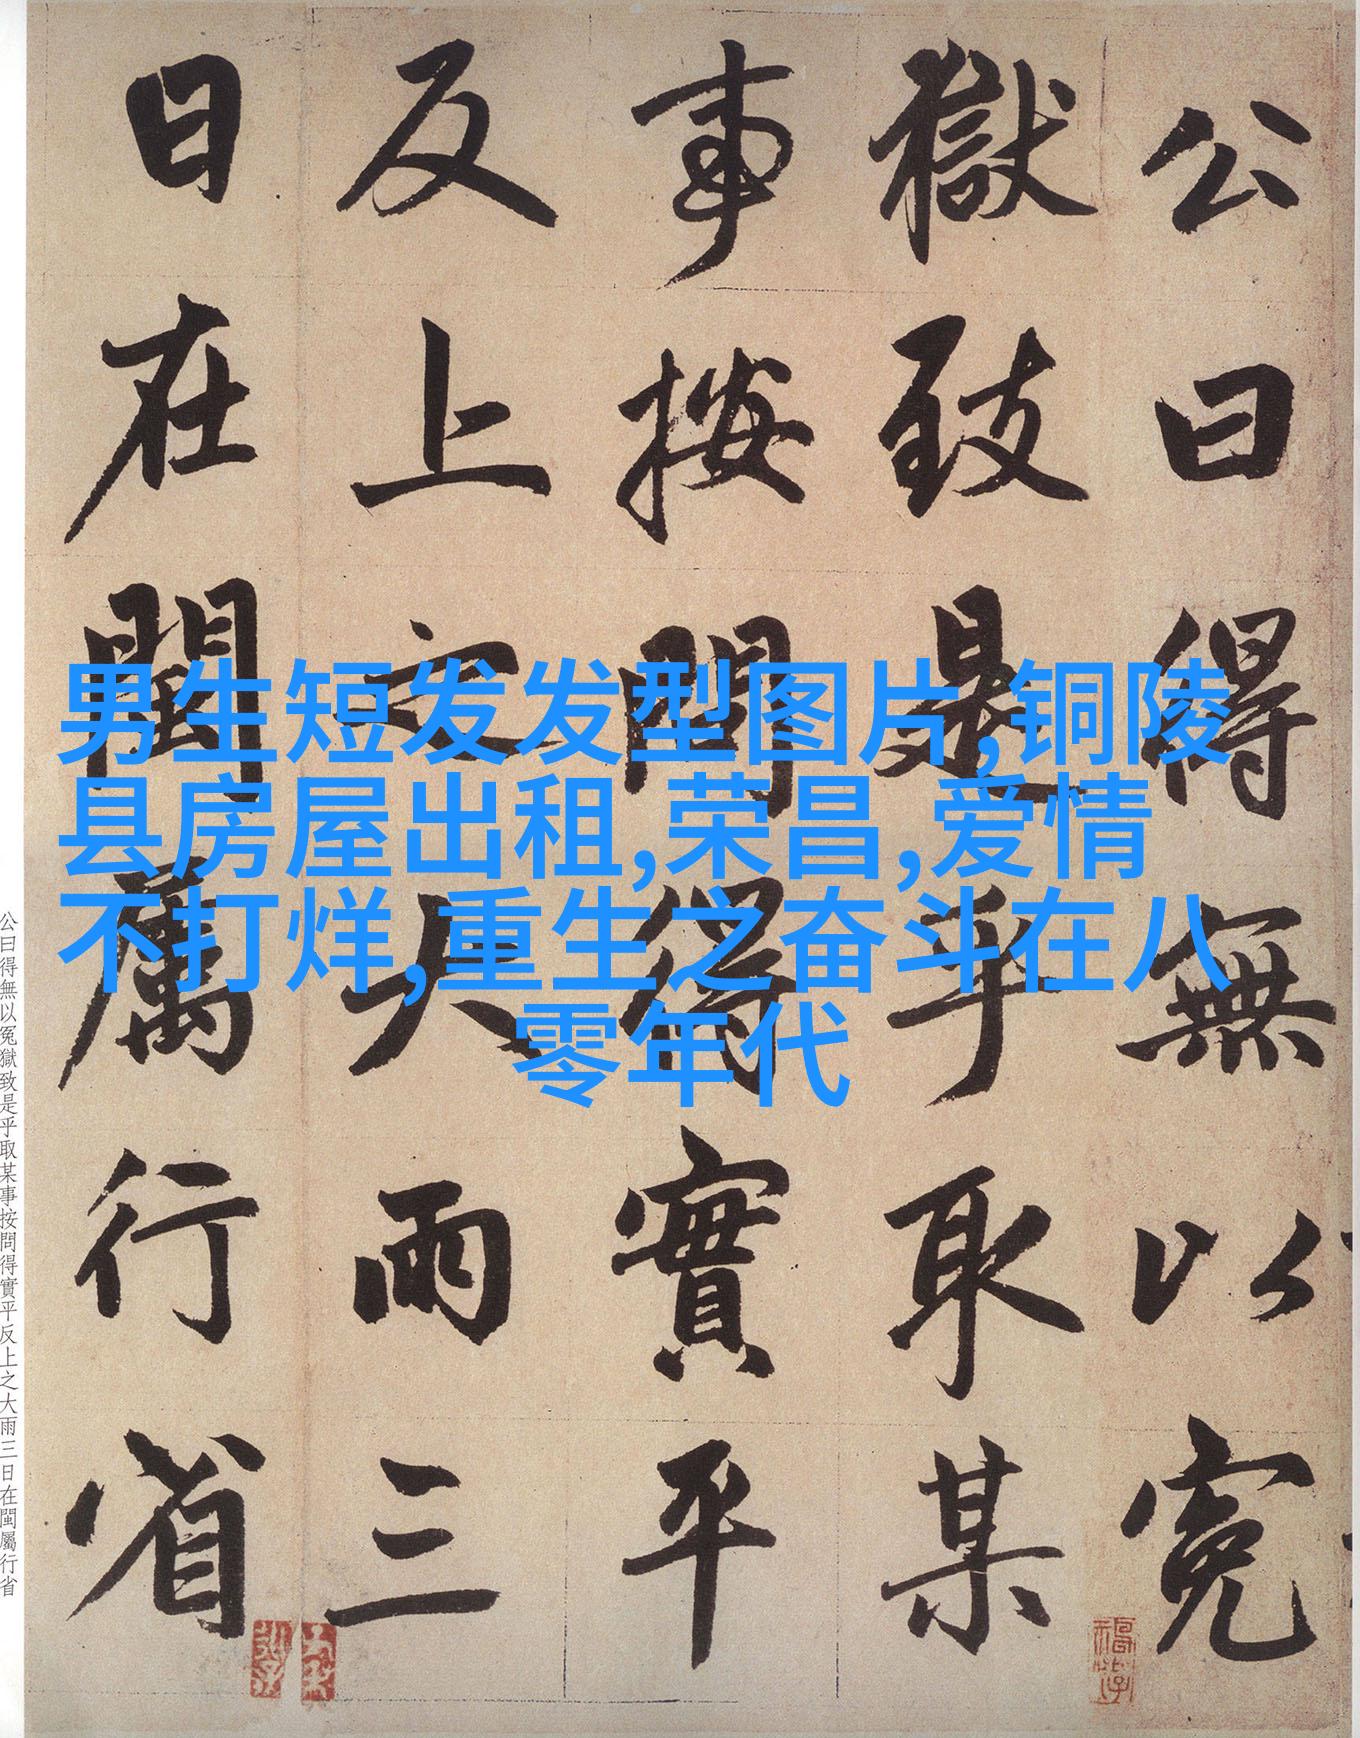 公曰得無以冤
獄致是乎取某
事按問得實平
反上之大雨三
日在閩屬行省
男生短发发型图片,铜陵
县房屋出租,荣昌,爱情
不打烊,重生之奋斗在八
零年代
公曰得無以冤獄致是乎取某事按問得實平反上之大雨三日在閩屬行省